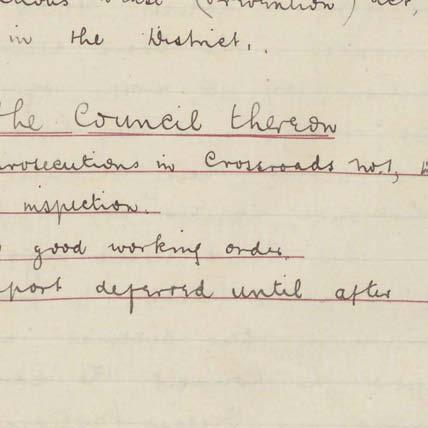 (Prevention) Act,
in the District.
the Council thereon
prosecutions in Crossroads No.1,
inspection.
good working order.
port deferred until after